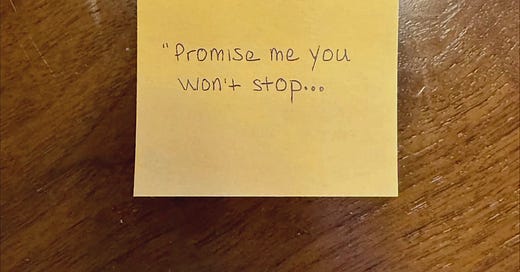 "Promise me you
won't stop...